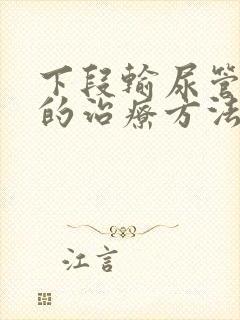 下段输尿管
的治疗方法
江言